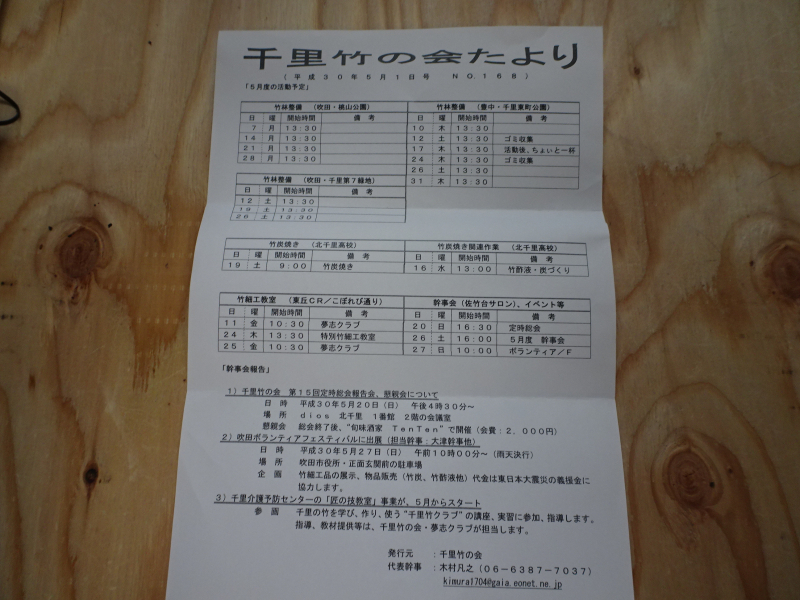 千里竹の会たより
（平成３０年５月１日号　ＮＯ.１６８）
「５月度の活動予定」
竹林整備　（吹田・桃山公園）
日　曜　開始時間　備　考
７　月　１３:３０
１４　月　１３:３０
２１　月　１３:３０
２８　月　１３:３０
竹林整備　（豊中・千里東町公園）
日　曜　開始時間　備　考
１０　木　１３:３０
１２　土　１３:３０　ゴミ収集
１７　木　１３:３０　活動後、ちょいと一杯
２４　木　１３:３０　ゴミ収集
２６　土　１３:３０
３１　木　１３:３０
竹林整備　（吹田・千里第７緑地）
日　曜　開始時間　備　考
１２　土　１３:３０
１９　土　１３:３０
２６　土　１３:３０
竹炭焼き　（北千里高校）
日　曜　開始時間　備　考
１９　土　９:００　竹炭焼き
竹炭焼き関連作業　（北千里高校）
日　曜　開始時間　備　考
１６　水　１３:００　竹酢液・炭づくり
竹細工教室　（東丘ＣＲ／こぼれび通り）
日　曜　開始時間　備　考
１１　金　１０:３０　夢志クラブ
２４　木　１３:３０　特別竹細工教室
２５　金　１０:３０　夢志クラブ
幹事会（佐竹台サロン）、イベント等
日　曜　開始時間　備　考
２０　日　１６:３０　定時総会
２６　土　１６:００　５月度　幹事会
２７　日　１０:００　ボランティア／Ｆ
「幹事会報告」
１）千里竹の会　第１５回定時総会報告会、懇親会について
日　時　平成３０年５月２０日（日）　午後４時３０分～
場　所　ｄｉｏｓ　北千里　１番館　２階の会議室
懇親会　総会終了後、“旬味酒家　ＴｅｎＴｅｎ”で開催（会費：２，０００円）
２）吹田ボランティアフェスティバルに出展（担当幹事：大津幹事他）
日　時　平成３０年５月２７日（日）　午前１０時００分～（雨天決行）
場　所　吹田市役所・正面玄関前の駐車場
企　画　竹細工品の展示、物品販売（竹炭、竹酢液他）代金は東日本大震災の義援金に
協力します。
３）千里介護予防センターの「匠の技教室」事業が、５月からスタート
参　画　千里の竹を学び、作り、使う“千里竹クラブ”の講座、実習に参加、指導します。
指導、教材提供等は、千里竹の会・夢志クラブが担当します。
発行元　：千里竹の会
代表幹事　：木村凡之（０６－６３８７－７０３７）
kimura1704@gaia.eonet.ne.jp